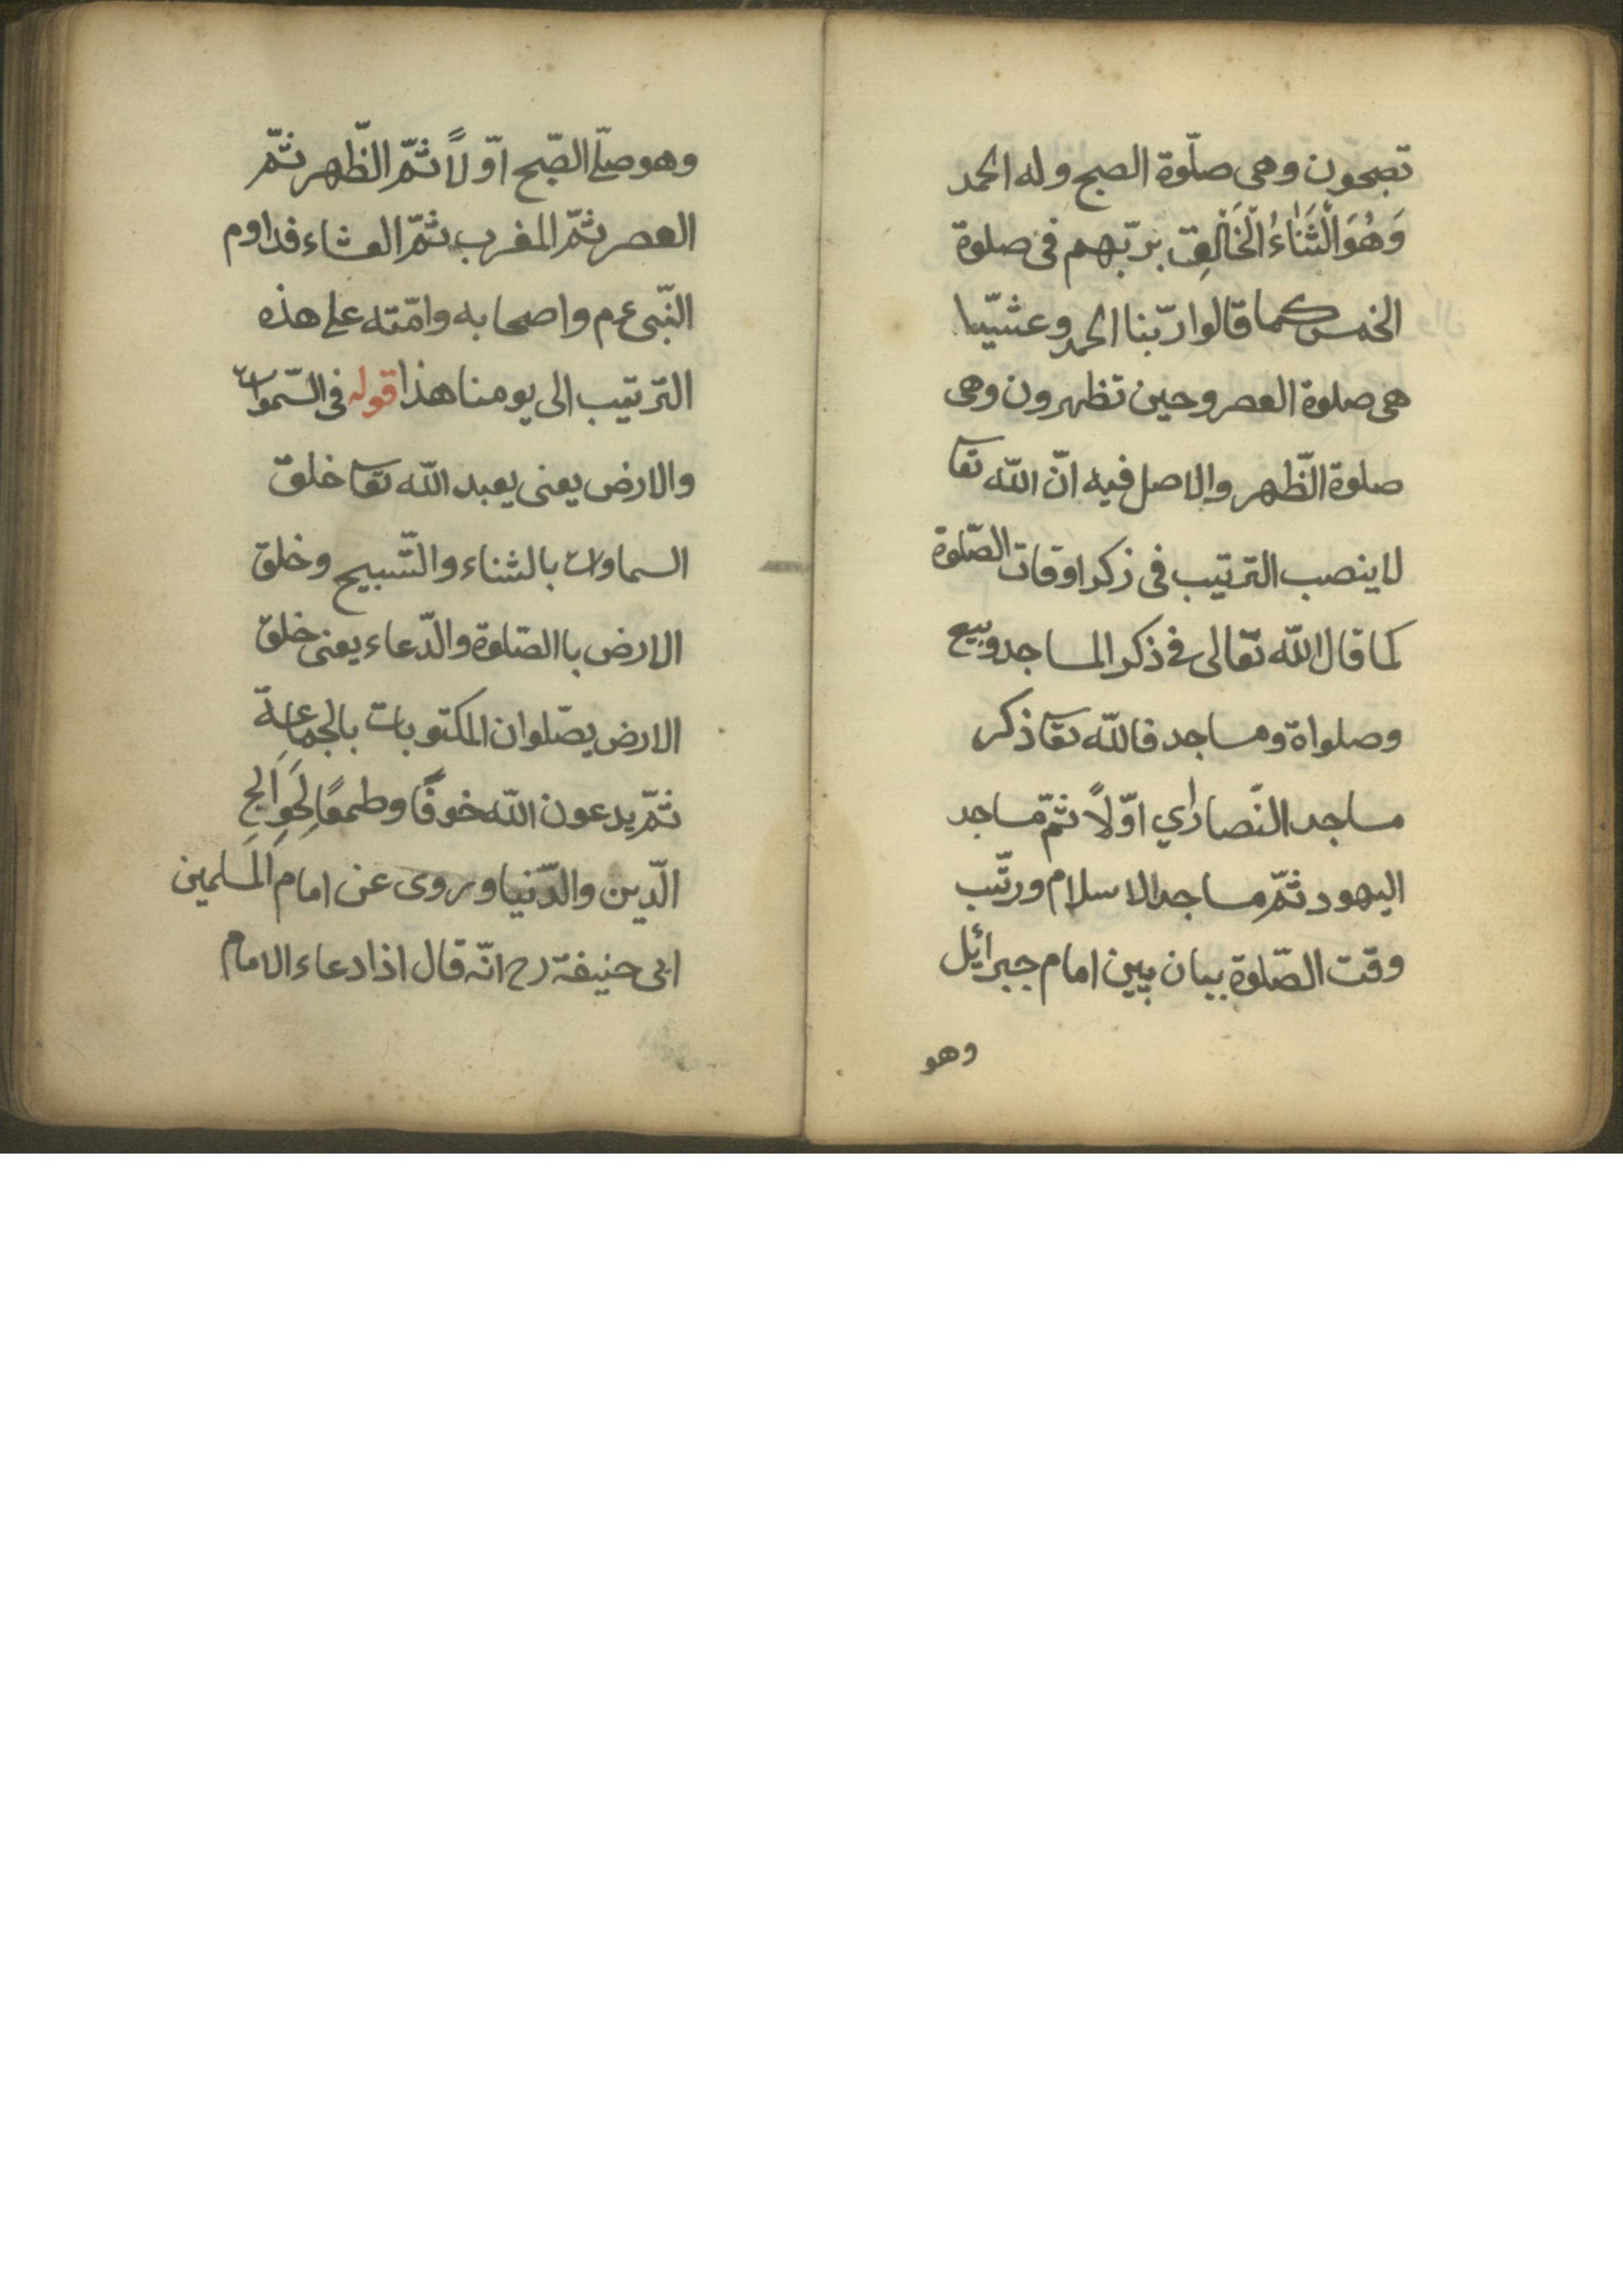 تصبحون وهى صلوة الصبح وله الحمد
وَهُوَ الْثَنَاءُ الْخَالِقِ بربّهم فى صلوة
الخمس كما قالوا ربّنا الحمد وعشيّا
هى صلوة العصر وحين تظهرون وهى
صلوة الظّهر والاصل فيه انّ اللّه تعا
لا ينصب الترتيب فى ذكر اوقات الصّلوة
كما قال اللّه تعالى فى ذكر المساجد وبيع
وصلواة ومساجد فاللّه تعا ذكر
مساجد النّصارٰي اوّلاً ثمّ مساجد
اليهود ثمّ مساجد الاسلام ورتّب
وقت الصّلوة ببيان بين امام جبرائيل
وهو
وهو صلّے الصّبح اوّلاً ثمّ الظّهر ثمّ
العصر ثمّ المغرب ثمّ العشاء فداوم
النّبى ع م واصحابه وامّته على هذه
الترتيب الى يومنا هذا قوله فى السّموات
والارض يعنى يعبد اللّه تعا خلق
السماوات بالثناء والتّسبيح وخلق
الارض باالصّلوة والدّعاء يعنى خلق
الارض يصّلوان المكتوبات بالجماعة
ثمّ يدعون اللّه خوفًا وطمعًا لِحَوَايِجِ
الدّين والدّنيا وروى عن امام المسلمين
ابى حنيفة رح انّه قال اذا دعاء الامام